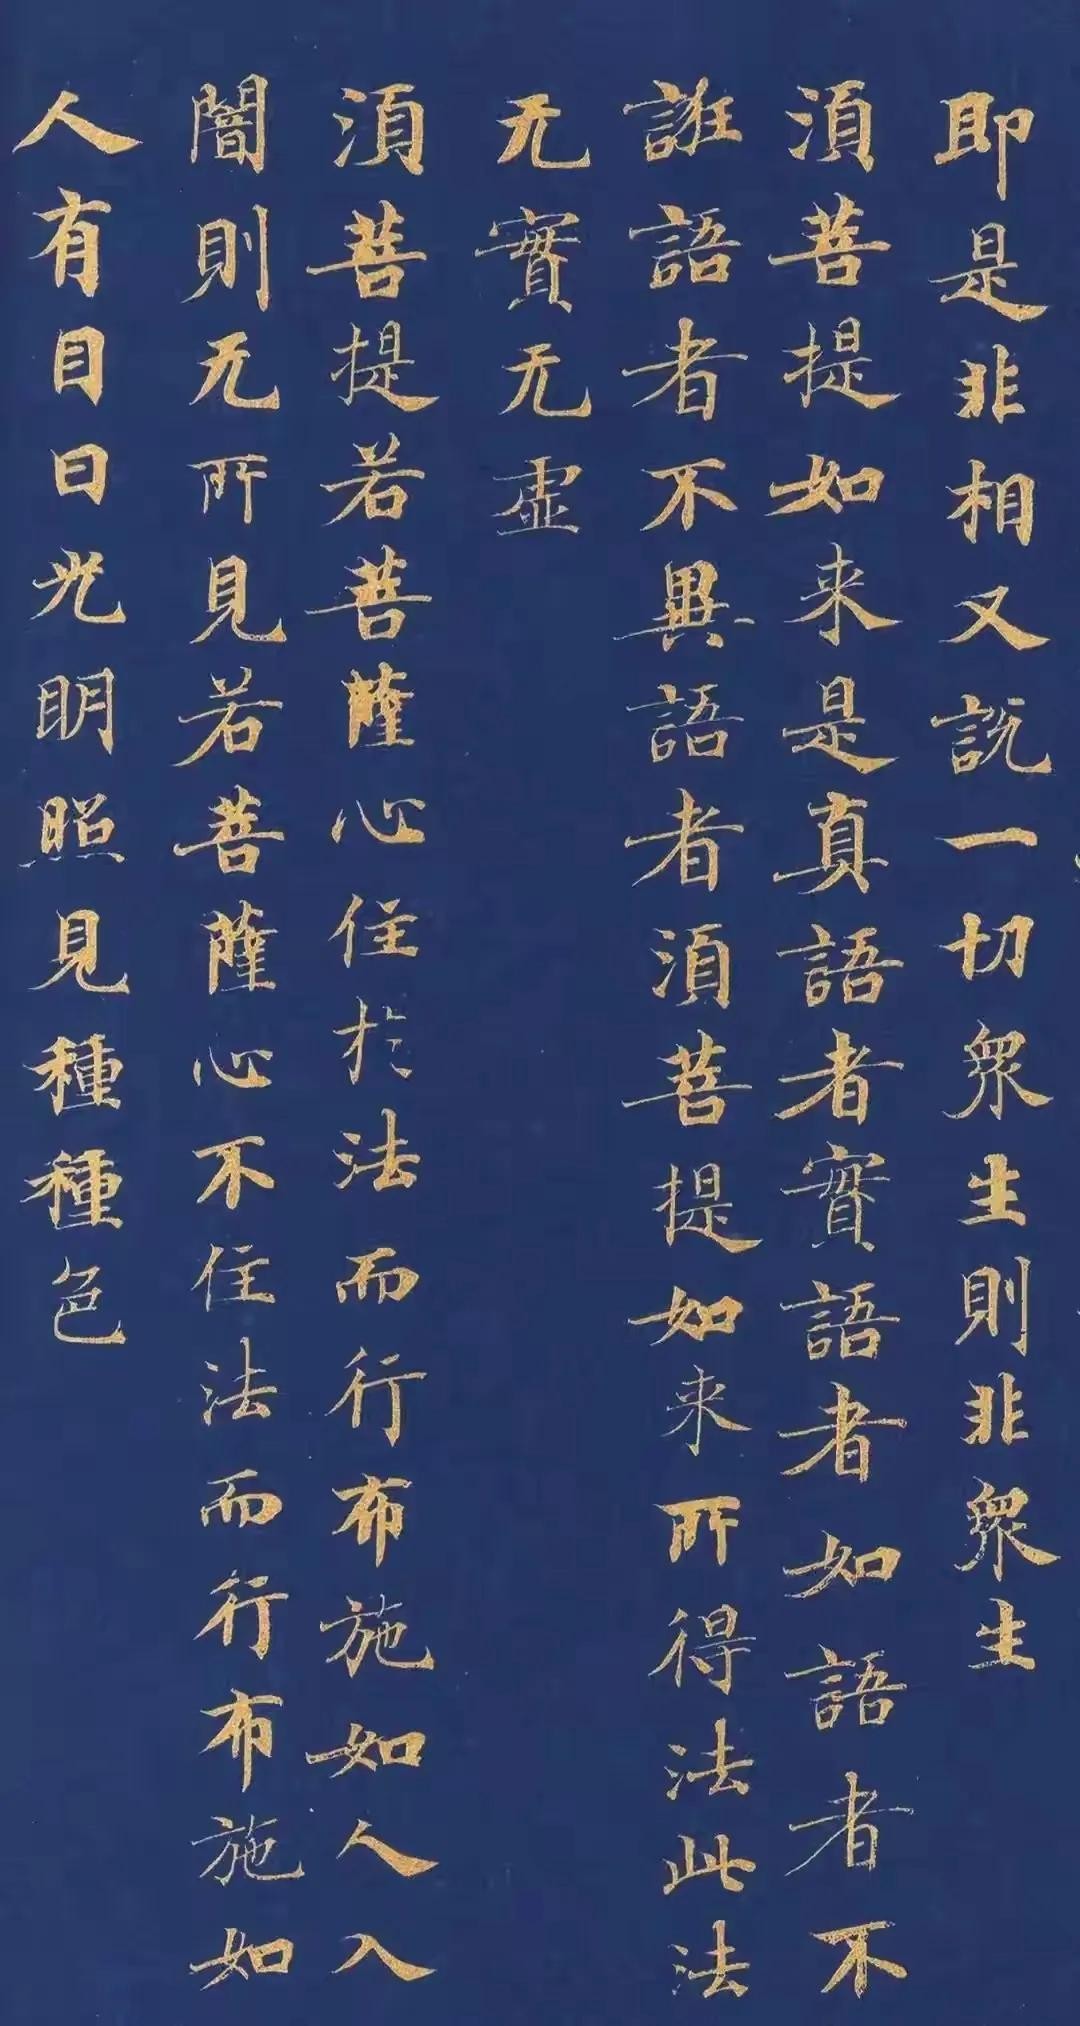 即是非相又說一切衆生則非衆生
湏菩提如来是真語者實語者如語者不
誑語者不異語者湏菩提如来所得法此法
无實无虚
湏菩提若菩薩心住於法而行布施如人入
闇則无所見若菩薩心不住法而行布施如
人有目日光明照見種種色